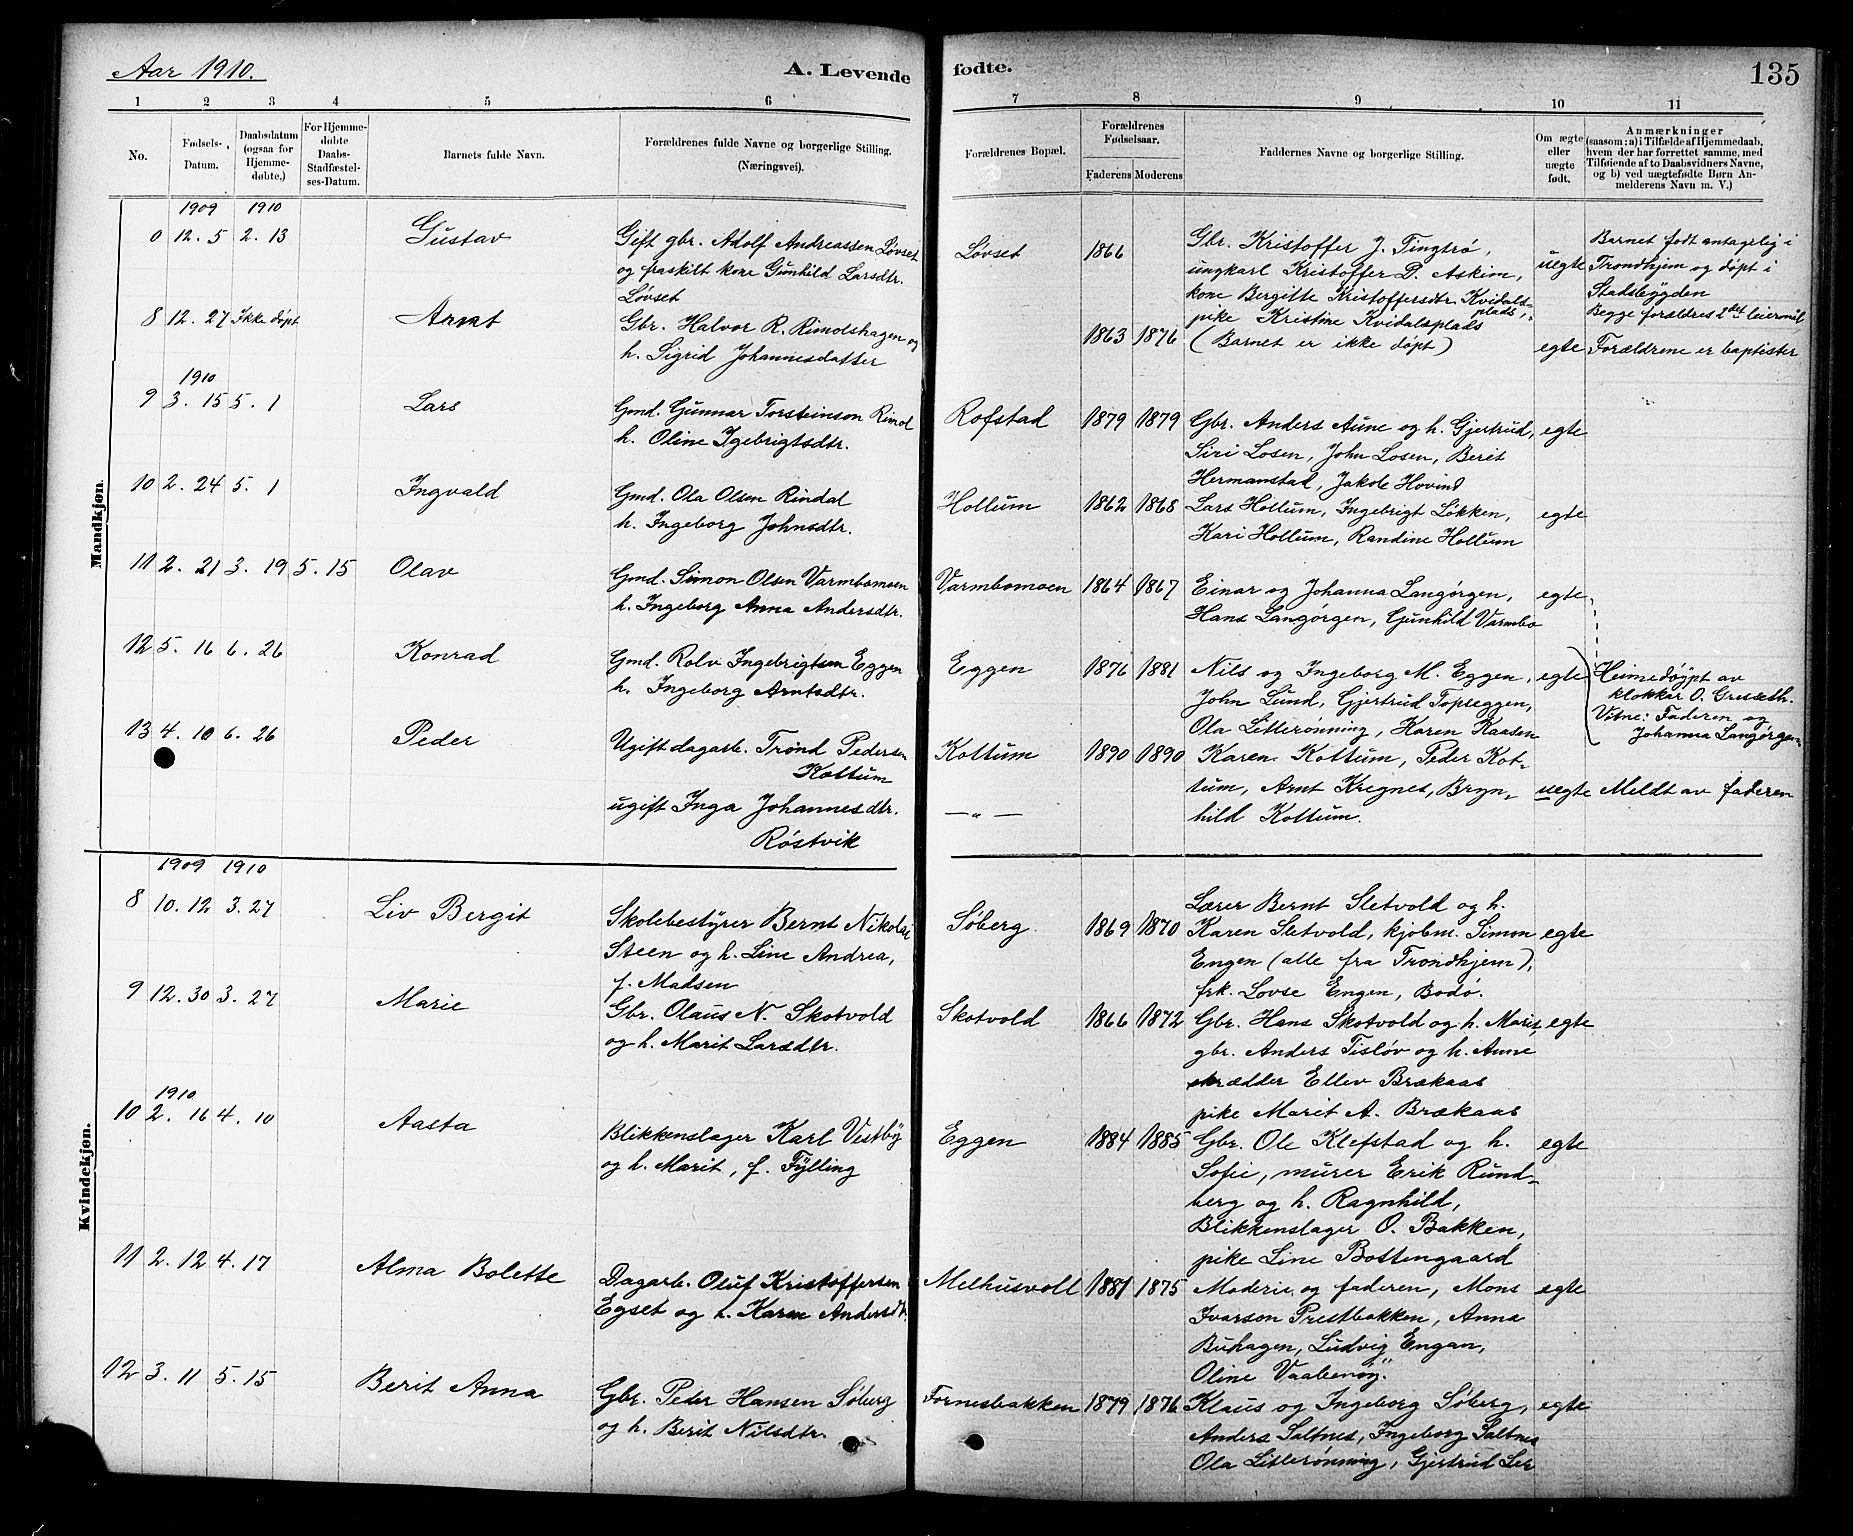 Aar 1910.
A. Levende
fødte.
135
1 2 3 4 5 6
7 8 9 10 11
No.
Fødsels-
Datum.
Daabsdatum
(ogsaa for
Hjemme-
døbte.)
For Hjemme-
døbte
Daabs-
Stadfæstel-
ses-Datum.
Barnets fulde Navn.
Forældrenes fulde Navne og borgerlige Stilling.
(Næringsvei).
Forældrenes Bopæl.
Forældrenes
Fødselsaar.
Faderens Moderens
Faddernes Navne og borgerlige Stilling.
Om ægte
eller
uægte
født.
Anmærkninger
(saasom: a) i Tilfælde af Hjemmedaab,
hvem der har forrettet samme, med
Tilføiende af to Daabsvidners Navne,
og b) ved uægtefødte Børn An-
melderens Navn m. V.)
Mandkjøn.
1909 1910
0 12. 5 2. 13 Gustav
Gift gbr. Adolf Andreassen Løvset
og fraskilt kone Gunhild Larsdtr.
Løvset
Løvset 1866
Gbr. Kristoffer J. Tingtrø,
ungkarl Kristoffer P. Askim,
kone Bergitte Kristoffersdtr. Kvidals-
plads,
pike Kristine Kvidalsplads
uegte
Barnet født antagelig i
Trondhjem og døpt i
Stadsbygden
Begge forældres 2det leiermål
8 12. 27 Ikke døpt Arnt
Gbr. Halvor R. Rimolshagen og
h. Sigrid Johannesdatter
1863 1876 (Barnet er ikke døpt) egte Forældrene er baptister
1910
9 3. 15 5. 1 Lars
Gmd. Gunnar Torsteinson Rimol
h. Oline Igebrigtsdtr.
Rofstad 1879 1879 Gbr. Anders Aune og h. Gjertrud, egte
Siri Losen, John Losen, Berit
Hermanstad, Jakob Hovind
10 2. 24 5. 1 Ingvald
Gmd. Ola Olsen Rindal
h. Ingeborg Johnsdtr.
Hollum 1862 1868 Lars Hollum, Ingebrigt Løkken, egte
Kari Hollum, Randine Hollum
11 2. 21 3. 19 5. 15 Olav
Gmd. Simon Olsen Varmbomoen
h. Ingeborg Anna Andersdtr.
Varmbomoen 1864 1867 Einar og Johanna Langørgen, egte
Hans Langørgen, Gunhild Varmbo
12 5. 16 6. 26 Konrad
Gmd. Rolv Ingebrigtsen Eggen
h. Ingeborg Arntsdtr.
Eggen 1876 1881 Nils og Ingeborg M. Eggen, egte
John Lund, Gjertrud Topseggen,
Ola Litlerønning, Karen Kaasen
Heimedøypt av
klokkar O. Gresæth.
Vitne: Faderen og
Johanna Langørgen.
13 4. 10 6. 26 Peder
Ugift dagarb. Trond Pedersen
Kottum
ugift Inga Johannesdtr.
Røstvik
Kottum 1890 1890 Karen Kottum, Peder Kot-
tum, Arnt Kregnes, Bryn-
hild Kottum.
— „ —
uegte Meldt av faderen
Kvindekjøn.
1909 1910
8 10. 12 3. 27 Liv Bergit
Skolebestyrer Bernt Nikolai
Steen og h. Line Andrea,
f. Madsen
Søberg 1869 1870
Lærer Bernt Sletvold og h.
Karen Sletvold, kjøbm. Simon egte
Engen (alle fra Trondhjem),
frk. Lovse Engen, Bodø.
9 12. 30 3. 27 Marie
Gbr. Olaus N. Skotvold
og h. Marit Larsdtr.
Skotvold 1866 1872 Gbr. Hans Skotvold og h. Marit, egte
gbr. Anders Tisløv og h. Anne
skrædder Ellev Brækaas
pike Marit A. Brækaas
1910
10 2. 16 4. 10 Aasta
Blikkenslager Karl Vestby
og h. Marit, f. Fylling
Eggen 1884 1885 Gbr. Ole Klefstad og h. egte
Sofie, murer Erik Rund-
berg og h. Ragnhild,
Blikkenslager O. Bakken,
pike Line Bostengaard
11 2. 12 4. 17 Alma Bolette
Dagarb. Oluf Kristoffersen
Egset og h. Karen Andersdtr.
Melhusvoll 1881 1875 Moderen og faderen, Mons egte
Ivarson Prestbakken, Anna
Buhagen, Ludvig Engan,
Oline Vaabenøy.
12 3. 11 5. 15 Berit Anna
Gbr. Peder Hansen Søberg
og h. Berit Nilsdtr.
Fornesbakken 1879 1876 Klaus og Ingeborg Søberg, egte
Anders Saltnes, Ingeborg Saltnes
Ola Litlerønning, Gjertrud Ler